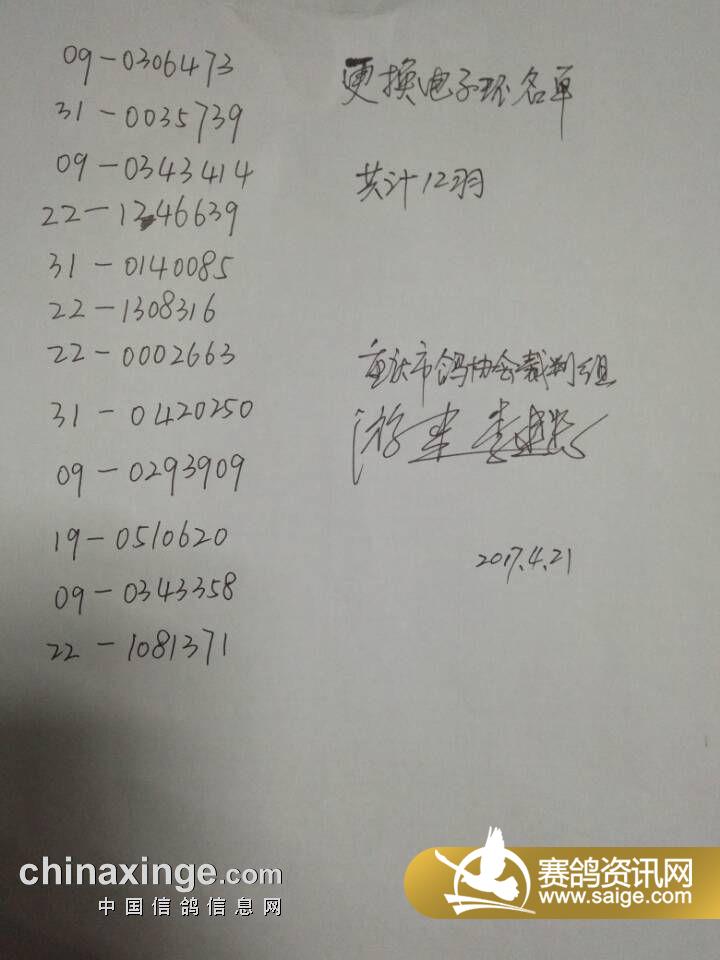 09-0306473
31-0035739
09-0343414
22-1246639
31-0140085
22-1308316
22-0002663
31-0420250
09-0293909
19-0510620
09-0343358
22-1081371
更换电子环名单
共计12羽
重庆市鸽协会裁判组
2017.4.21
chinaxinge.com
中国信鸽信息网
赛鸽资讯网
www.saige.com